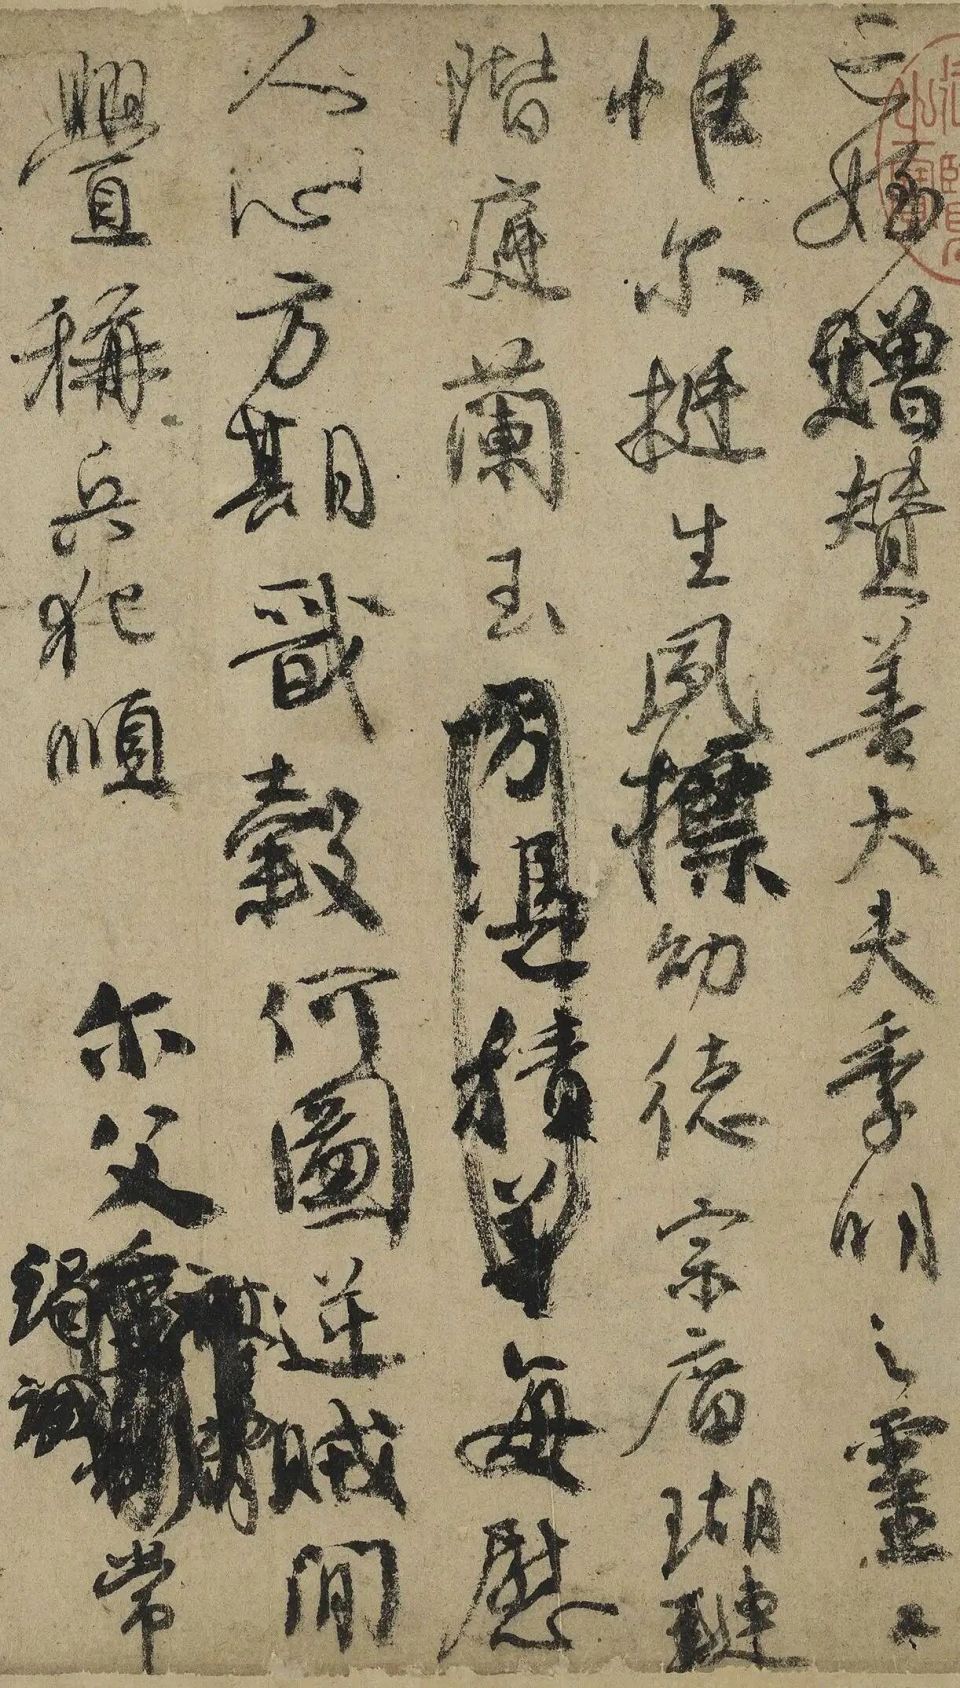 亡姪贈贊善大夫季明之靈曰
惟爾挺生夙標幼德宗廟瑚璉
階庭蘭玉方憑積善每慰
人心方期戩穀何圖逆賊間
釁稱兵犯順爾父竭誠常